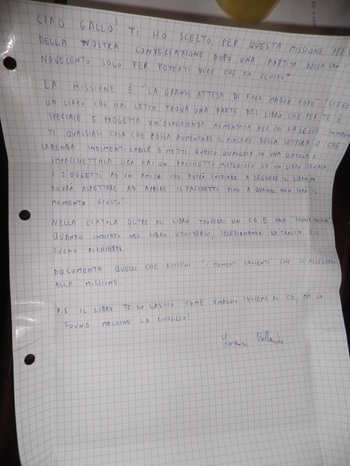 CIAO GALLO! TI HO SCELTO PER QUESTA MISSIONE PER
DELLA NOSTRA CONVERSAZIONE DOPO UNA PARTITA DELLA SAN
NOVECENTO SOLO PER POTERTI DIRE CHE FA SCHIFO"
LA MISSIONE È "LA GRANDE ATTESA DI
UN LIBRO CHE HAI LETTO, TROVA UNA PARTE DEL LIBRO CHE PER TE È
SPECIALE E PROGETTA UN'ESPERIENZA AUMENTATA PER CHI LA LEGGE.
TI QUALSIASI COSA CHE POSSA AUMENTARE IL DELLA LETTURA O CHE
LA RENDA INDIMENTICABILE E METTI QUESTO QUALCOSA IN UNA SCATOLA E
IMPACCHETTALA ORA HAI UN PACCHETTO MISTERIOSO ED UN LIBRO REGALA
I 2 OGGETTI AD UN AMICO CHE POTRÀ INIZIARE A LEGGERE IL LIBRO, MA
DOVRÀ ASPETTARE AD APRIRE IL PACCHETTO FINO A QUANDO NON SARÀ IL
MOMENTO GIUSTO
NELLA SCATOLA OLTRE AL LIBRO TROVERAI UN CD E UNA "SOUND MACHINE"
QUANDO INDICATO NEL LIBRO UTILIZZALI, SELEZIONANDO LA TRACCIA O IL
SUONO RICHIESTI.
DOCUMENTA QUELLI CHE RITIENI "I MOMENTI SALIENTI" CHE
ALLA MISSIONE.
P.S IL LIBRO TE LO LASCIO COME OMAGGIO INSIEME AL CD, MA LA
SOUND MACHINE LA RIVOGLIO!